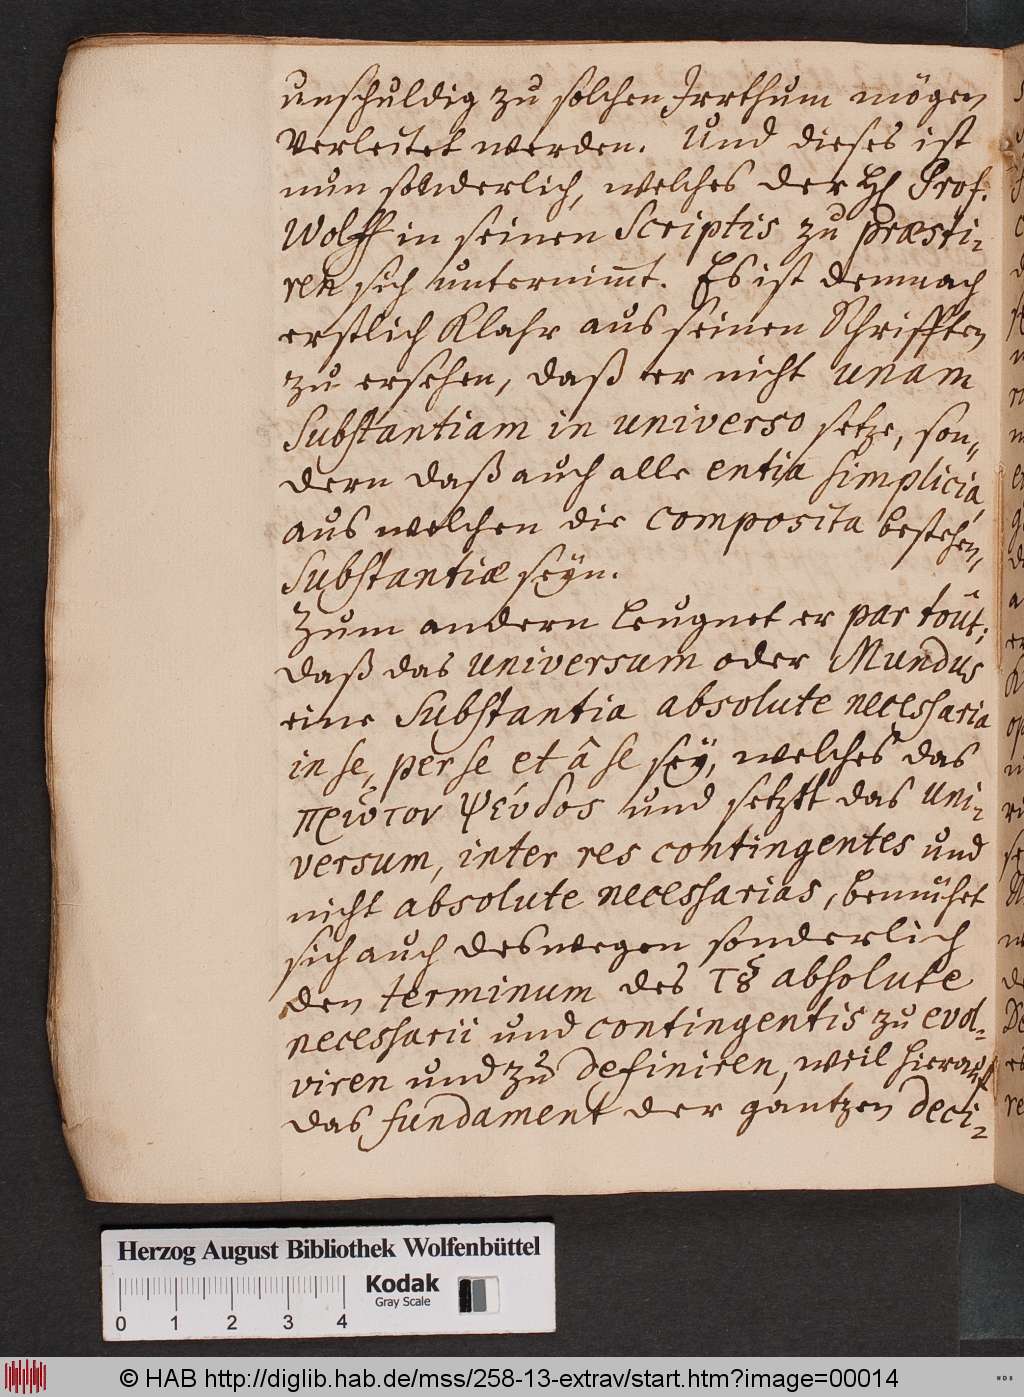 unschuldig zu solchen Irrthum mögen
Verleitet werden. Und dieses ist
nun sonderlich, welches der H Prof.
Wolff in seinen Scriptis zu præsti-
ren sich unternim̄t. Es ist demnach
erstlich Klahr aus seinen Schrifften
zu ersehen, daß er nicht unam
Substantiam in universo setze, son-
dern daß auch alle entia simplicia,
aus welchen die composita bestehen,
Substantiæ seÿn.
Zum andern leugnet er par toût;
daß das universum oder Mundus
eine Substantia absolute necessaria
in se, per se et â se seÿ, welches das
πρῶτον ψεύδος und setzt das uni-
versum, inter res contingentes und
nicht absolute necessarias, bemühet
sich auch deswegen sonderlich
den terminum des τȣ absolute
necessarii und contingentis zu evol-
viren und zu definiren, weil hierauff
das fundament der gantzen deci-
Herzog August Bibliothek Wolfenbüttel
Kodak
Gray Scale
0 1 2 3 4
© HAB http://diglib.hab.de/mss/258-13-extrav/start.htm?image=00014